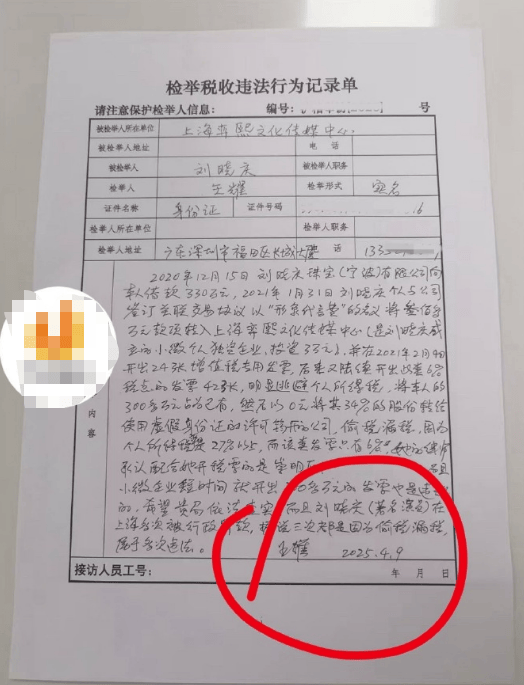 检举税收违法行为记录单
请注意保护检举人信息: 编号: 号
被检举人所在单位 上海弈熙文化传媒中心
被检举人地址 电话
被检举人 刘晓庆 被检举人职务
检举人 王耀 检举形式 实名
证件名称 身份证 证件号码 16
检举人所在单位 检举人职务
检举人地址 广东深圳市福田区长城大厦 电话 133
内容
2020年12月15日刘晓庆珠宝(宁波)有限公司向
本人借款330万元,2021年1月31日刘晓庆个人与公司
签订关联交易协议以“形象代言费”的名义将叁佰多
万元款项转入上海弈熙文化传媒中心(是刘晓庆成
立的小微个人独资企业,投资3万元),并在2021年2月4日
开出24张增值税专用发票,后来又陆续开出这类6%
税点的发票428张,明显逃避个人所得税,将本人的
300多万元占为己有,然后以0元将其34%的股份转给
使用虚假身份证的许可新的公司,偷税漏税,因为
个人所得税 27%以上,而该类发票只有6%,她的律师
承认配合她开税票的是崇明
小微企业短时间就开出 多万元的发票也是违法
的,希望贵局依法 实,而且刘晓庆(著名演员)在
上海多次被行政 款, 三次都是因为偷税漏税,
属于多次违法。 王耀 2025.4.9
接访人员工号: 年 月 日